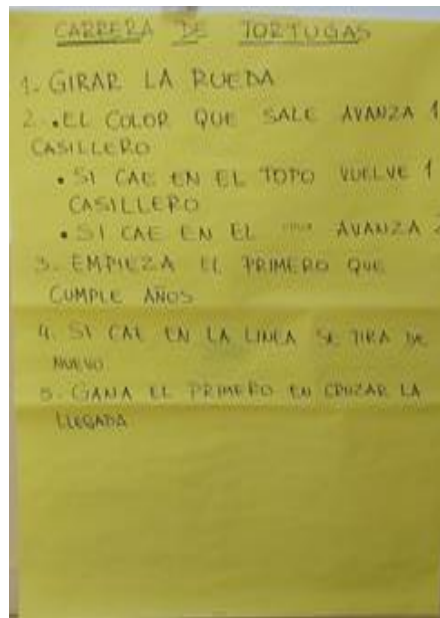 CARRERA DE TORTUGAS
1. GIRAR LA RUEDA
2. • EL COLOR QUE SALE AVANZA 1
CASILLERO
• SI CAE EN EL TOPO VUELVE 1
CASILLERO
• SI CAE EN EL AVANZA 2
3. EMPIEZA EL PRIMERO QUE
CUMPLE AÑOS
4. SI CAE EN LA LINEA SE TIRA DE
NUEVO
5. GANA EL PRIMERO EN CRUZAR LA
LLEGADA